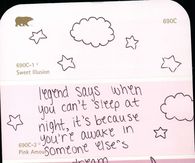 690C
690C-1
Sweet Illusion
legend says when
you can't sleep at
night, it's because
you're awake in
690C-2
someone else's
Pink
dream